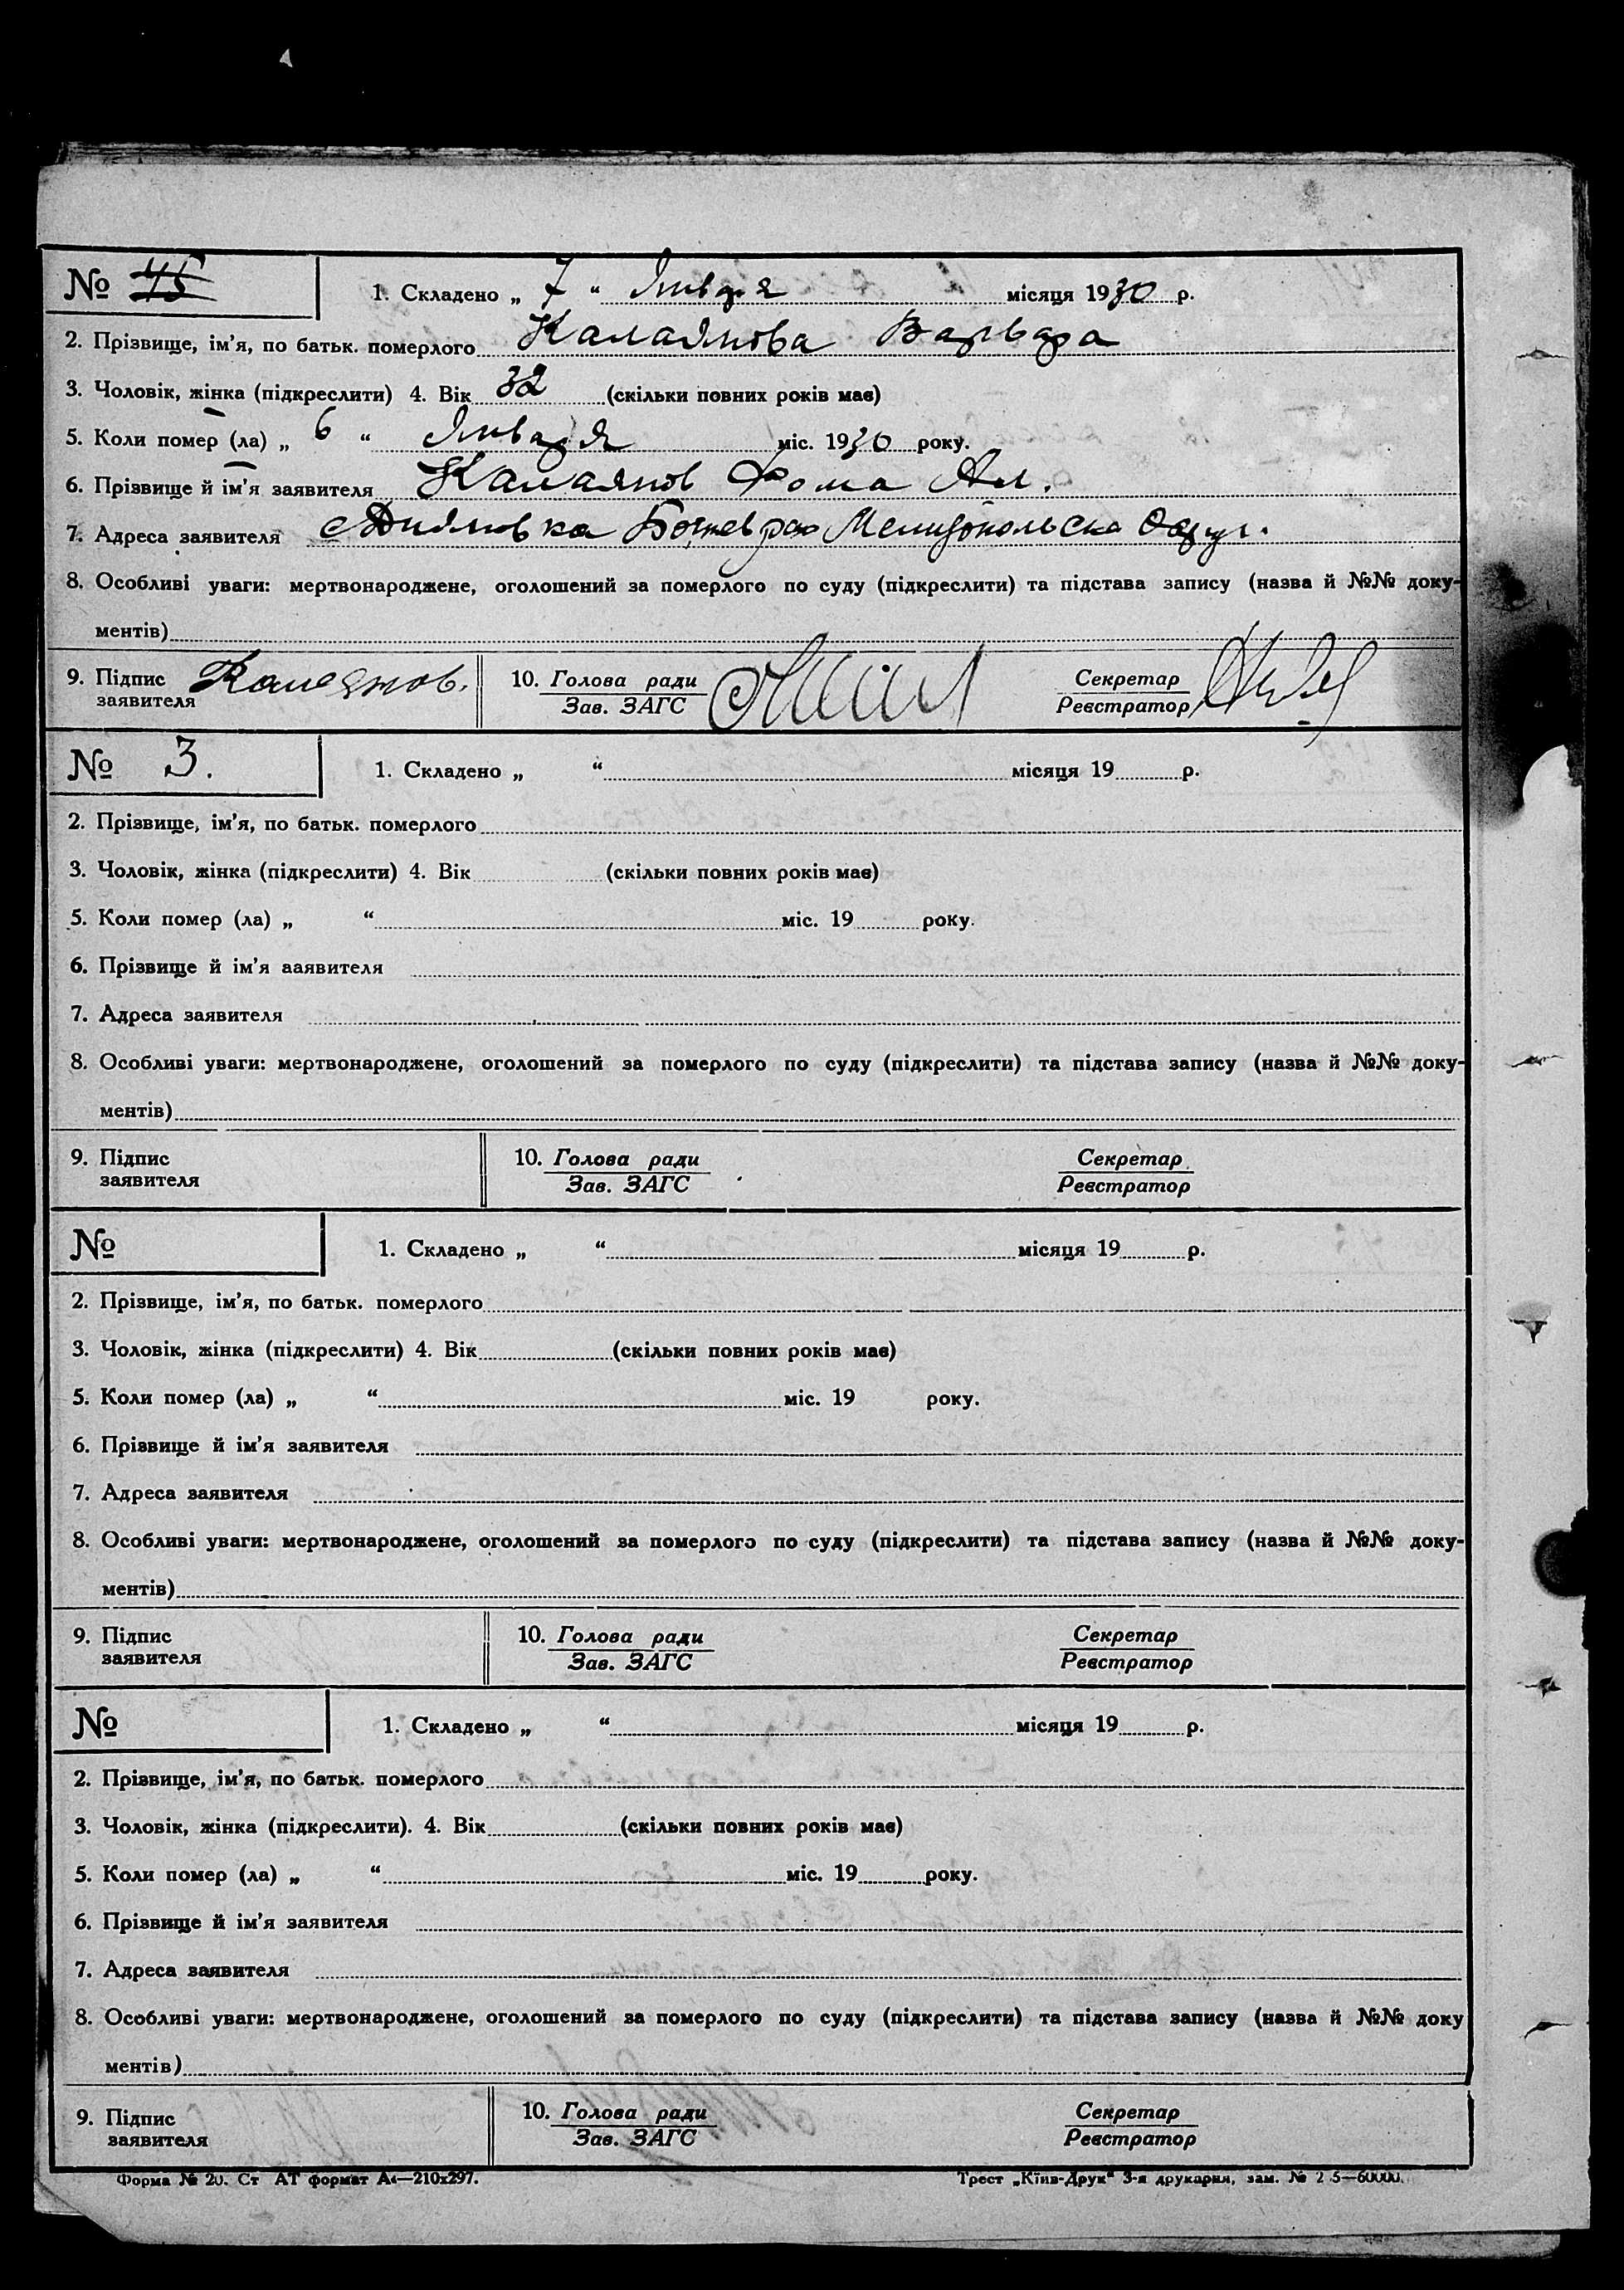 № 45 1. Складено „ 7 “ Января місяця 1930 р.
2. Прізвище, ім’я, по батьк. померлого Калаянова Варвара
3. Чоловік, жінка (підкреслити) 4. Вік 32 (скільки повних років має)
5. Коли помер (ла) „ 6 “ Января міс. 1930 року.
6. Прізвище й ім’я заявителя Калаянов Фома Ал.
7. Адреса заявителя Мелитопольск Округ.
8. Особливі уваги: мертвонароджене, оголошений за померлого по суду (підкреслити) та підстава запису (назва й №№ доку-
ментів)
9. Підпис Калаянов. 10. Голова ради Секретар
заявителя Зав. ЗАГС Реєстратор
№ 3. 1. Складено „ “ місяця 19 р.
2. Прізвище, ім’я, по батьк. померлого
3. Чоловік, жінка (підкреслити) 4. Вік (скільки повних років має)
5. Коли помер (ла) „ “ міс. 19 року.
6. Прізвище й ім’я ааявителя
7. Адреса заявителя
8. Особливі уваги: мертвонароджене, оголошений за померлого по суду (підкреслити) та підстава запису (назва й №№ доку-
ментів)
9. Підпис 10. Голова ради Секретар
заявителя Зав. ЗАГС Реєстратор
№ 1. Складено „ “ місяця 19 р.
2. Прізвище, ім’я, по батьк. померлого
3. Чоловік, жінка (підкреслити) 4. Вік (скільки повних років має)
5. Коли помер (ла) „ “ міс. 19 року.
6. Прізвище й ім’я заявителя
7. Адреса заявителя
8. Особливі уваги: мертвонароджене, оголошений за померлого по суду (підкреслити) та підстава запису (назва й №№ доку-
ментів)
9. Підпис 10. Голова ради Секретар
заявителя Зав. ЗАГС Реєстратор
№ 1. Складено „ “ місяця 19 р.
2. Прізвище, ім’я, по батьк. померлого
3. Чоловік, жінка (підкреслити). 4. Вік (скільки повних років має)
5. Коли помер (ла) „ “ міс. 19 року.
6. Прізвище й ім’я заявителя
7. Адреса заявителя
8. Особливі уваги: мертвонароджене, оголошений за померлого по суду (підкреслити) та підстава запису (назва й №№ доку
ментів)
9. Підпис 10. Голова ради Секретар
заявителя Зав. ЗАГС Реєстратор
Форма № 20. Ст АТ формат А4—210х297. Трест „Київ-Друк“ 3-я друкарня, зам. № 2 5—60000.